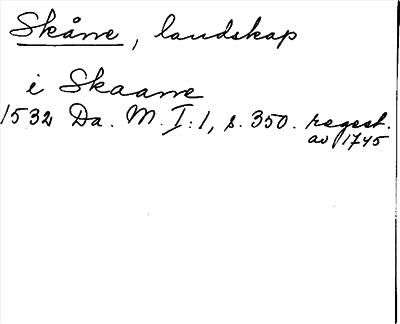 Skåne, landskap
i Skaane
1532 Da. M. I:1, s. 350. regest.
av 1745